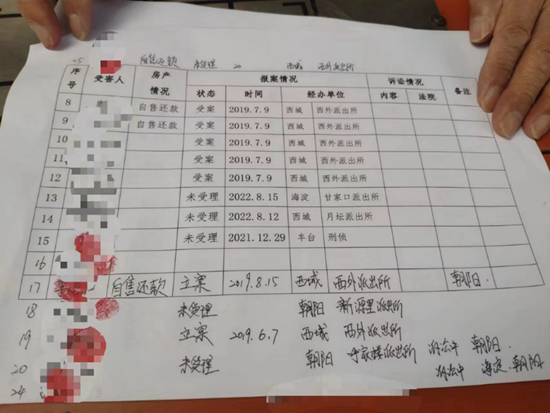 自售还款 未受理 20 西城 西外派出所
序号 受害人 房产情况 报案情况 诉讼情况 备注
状态 时间 经办单位 内容 法院
8 自售还款 受案 2019.7.9 西城 西外派出所
9 自售还款 受案 2019.7.9 西城 西外派出所
10 受案 2019.7.9 西城 西外派出所
11 受案 2019.7.9 西城 西外派出所
12 受案 2019.7.9 西城 西外派出所
13 未受理 2022.8.15 海淀 甘家口派出所
14 未受理 2022.8.12 西城 月坛派出所
15 未受理 2021.12.29 丰台 刑侦
16
17 自售还款 立案 2019.8.15 西城 西外派出所 朝阳.
18 未受理 朝阳 新源里派出所
19 立案 2019.6.7 西城 西外派出所
20 未受理 朝阳 呼家楼派出所 朝阳
24 海淀.朝阳